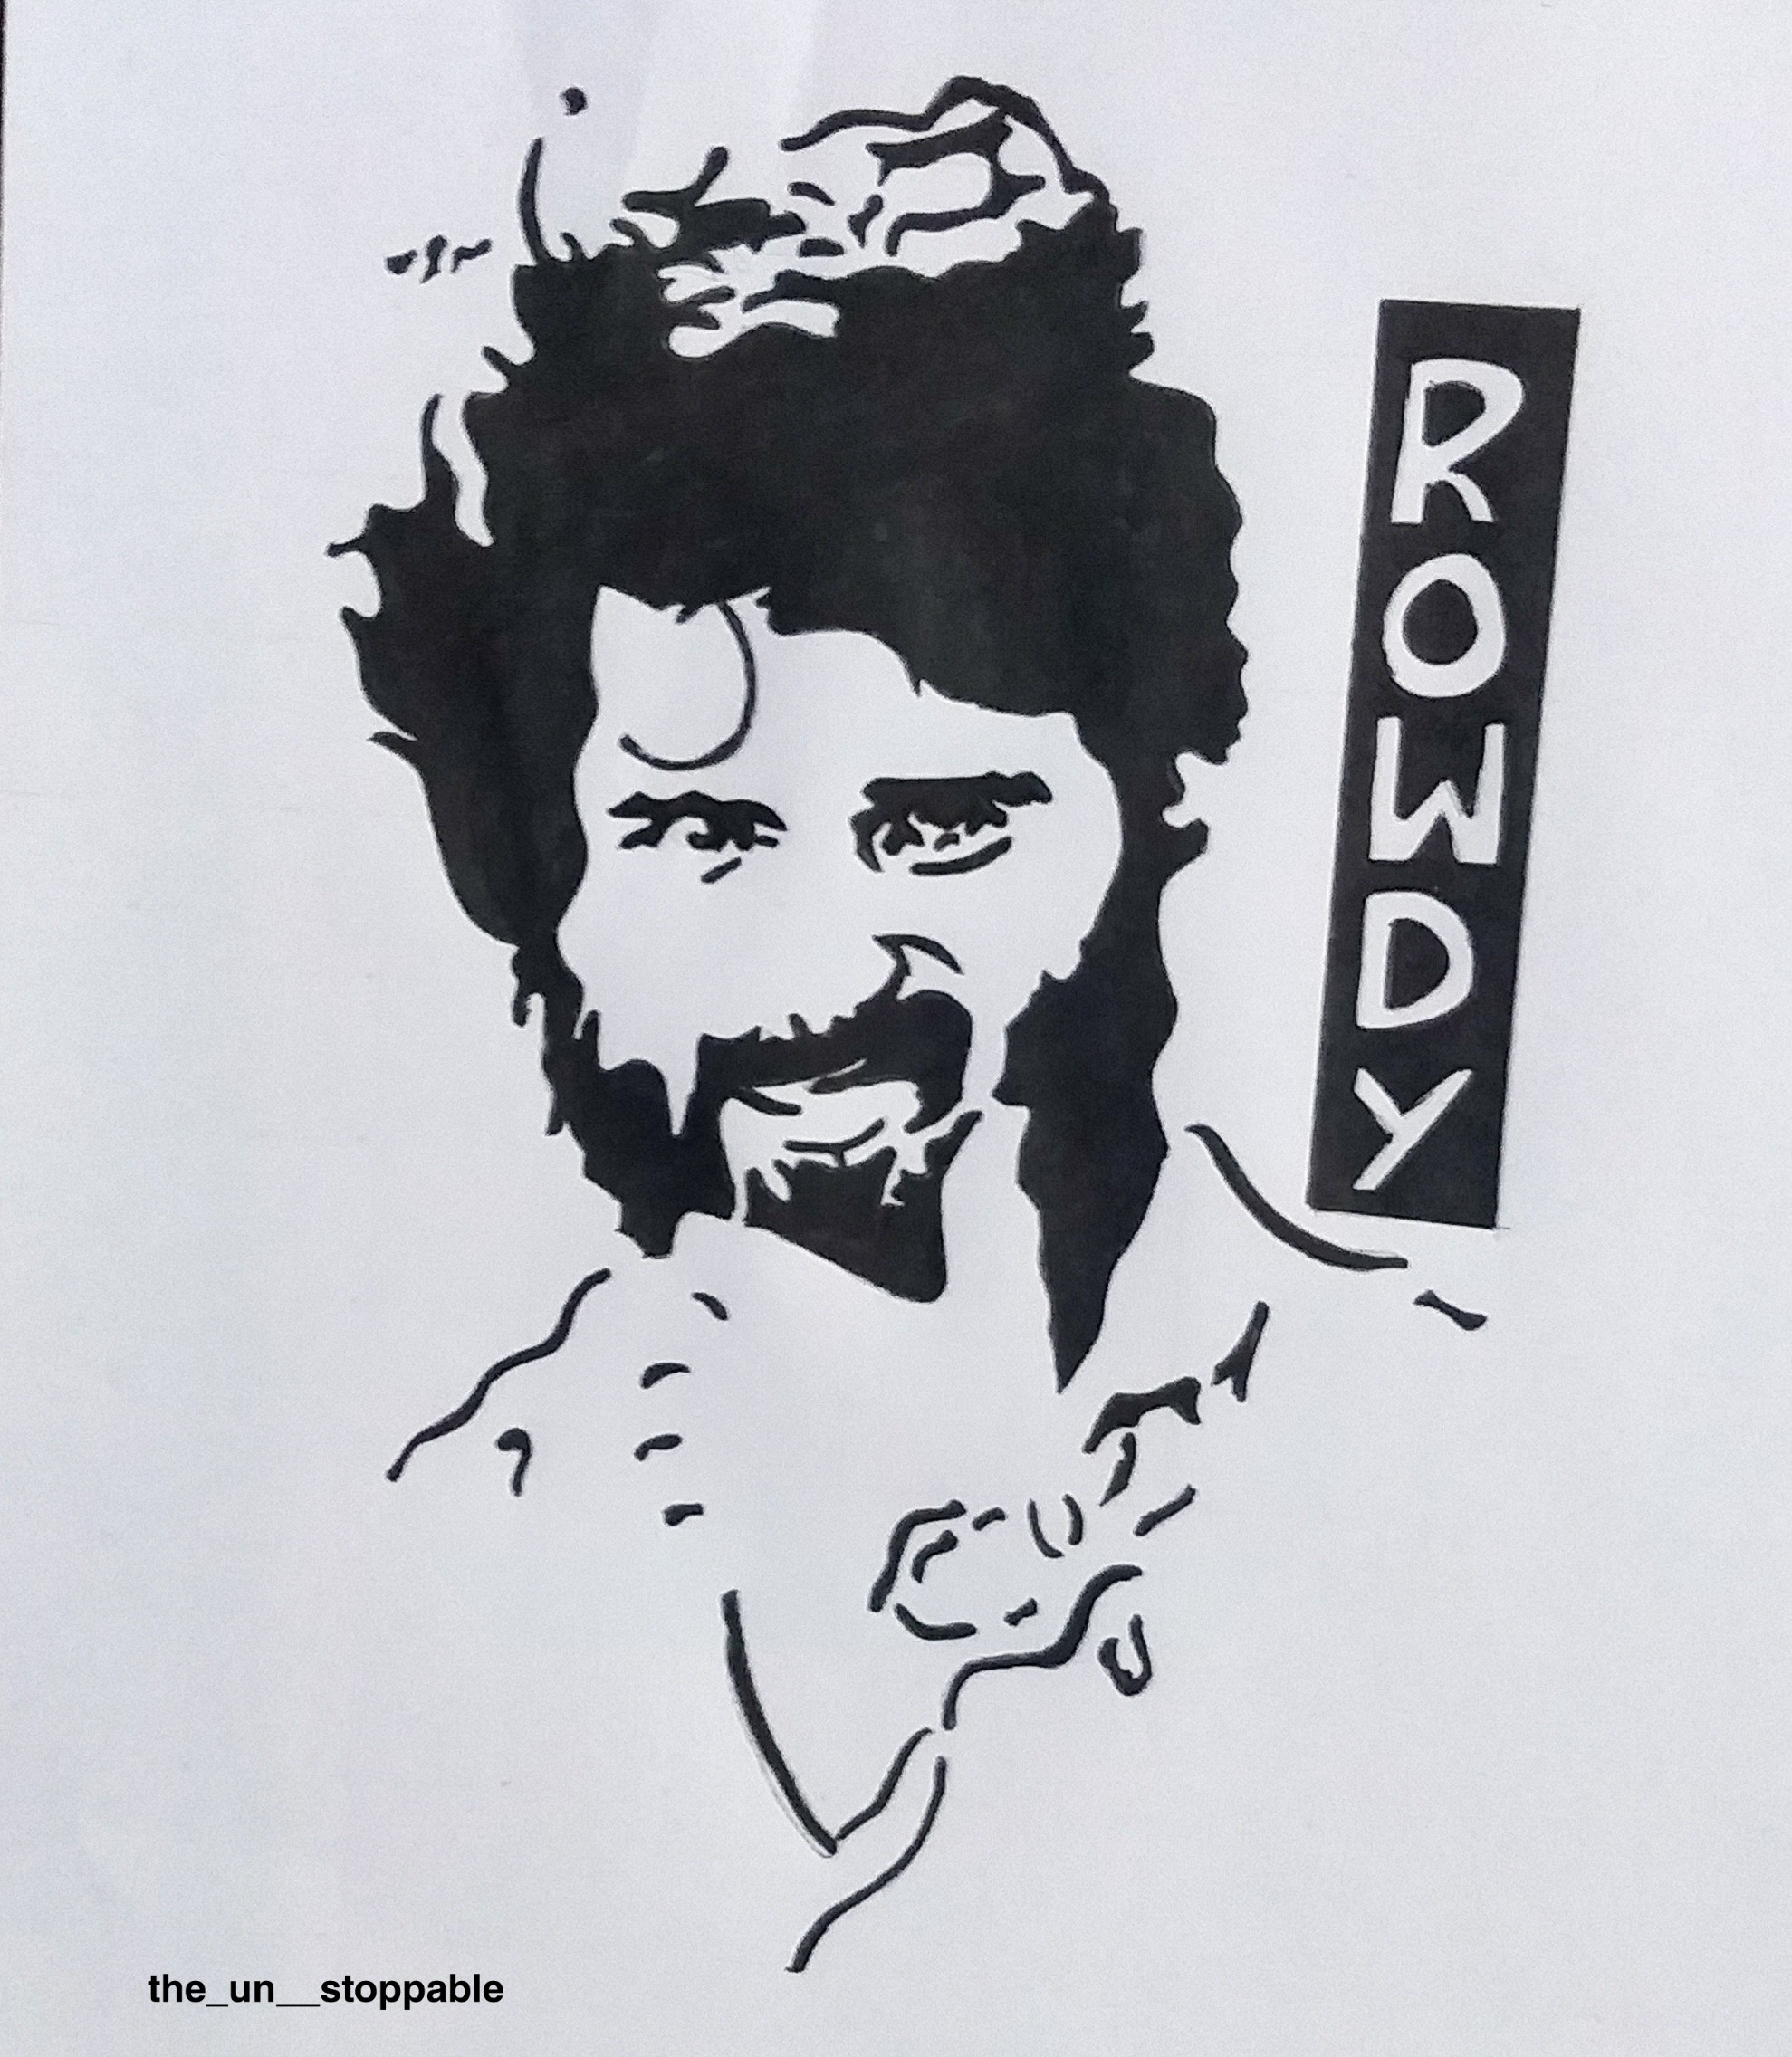 ROWDY
the_un__stoppable